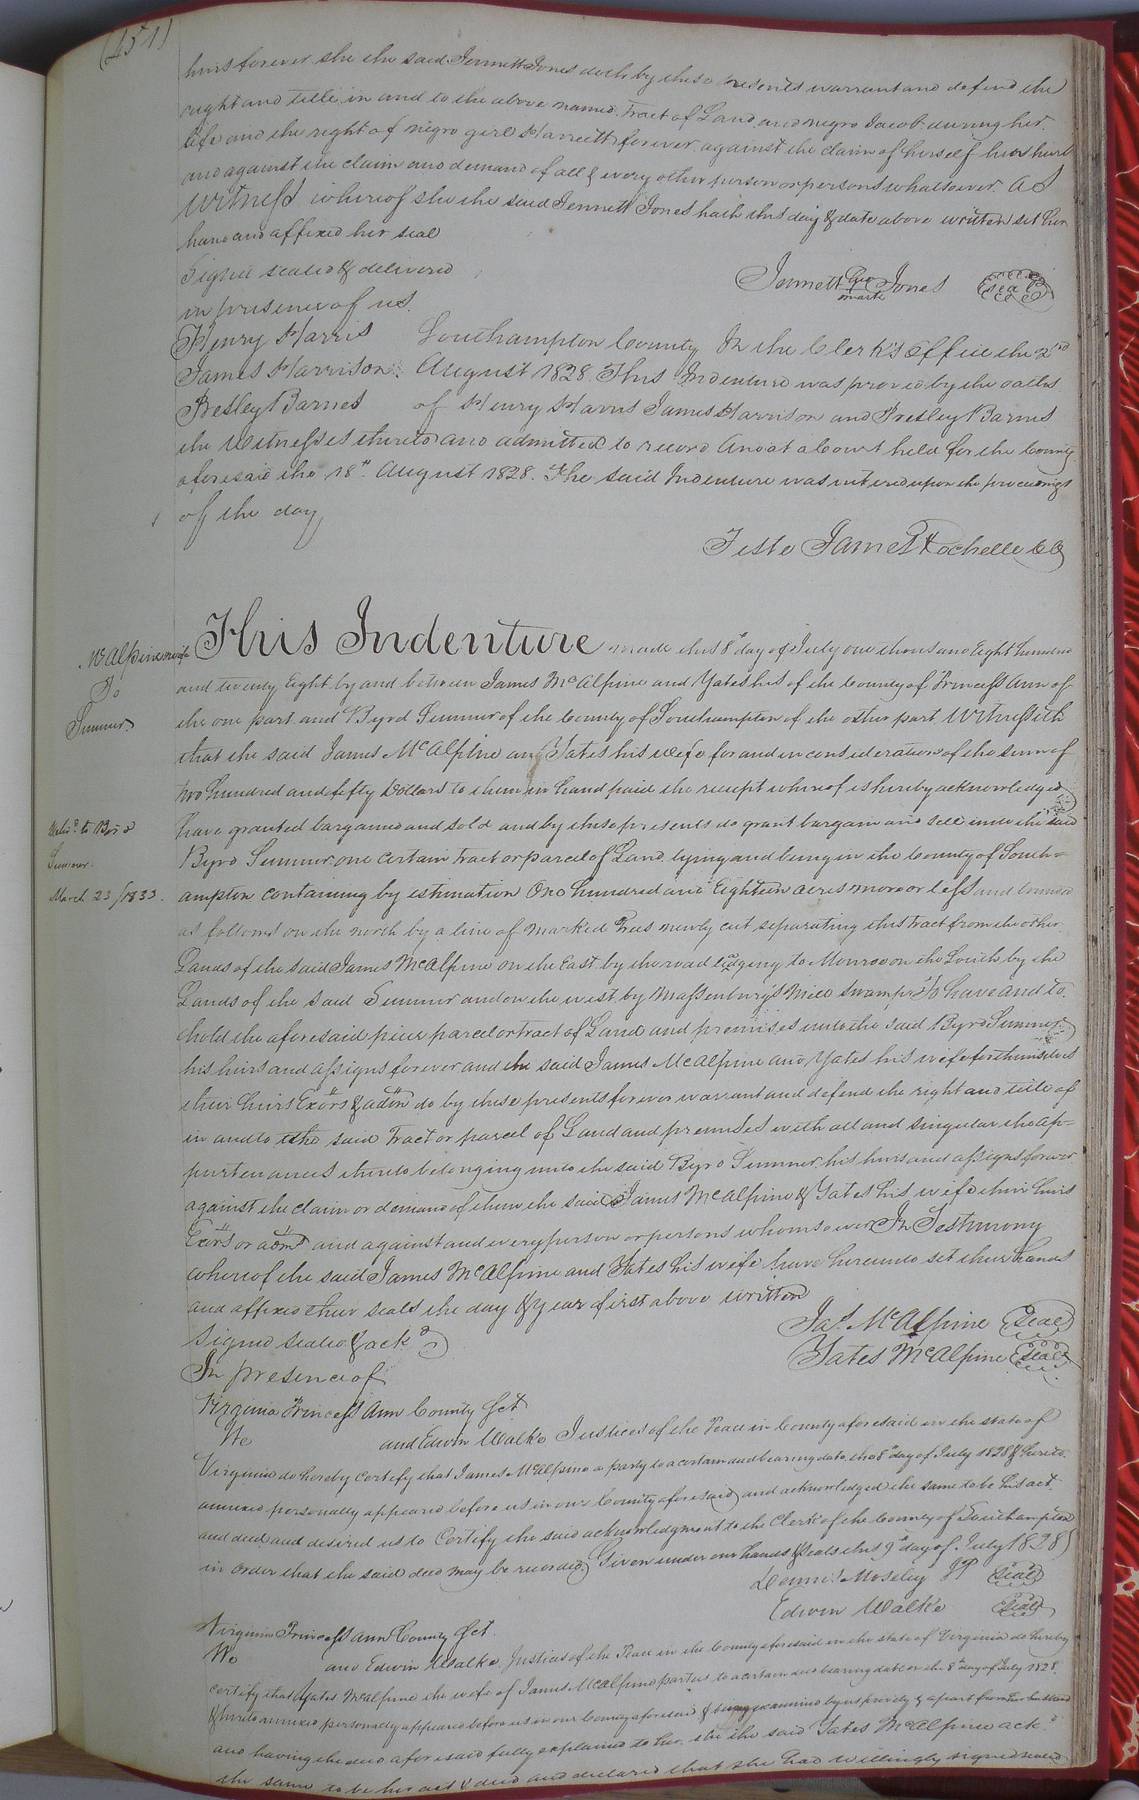 (451)
heirs forever she the said Jennett Jones doth by these presents warrant and defend the
right and title in and to the above named Tract of Land and negro Jacob during her
life and the right of negro girl Harriett forever against the claim of herself her heirs
and against the claim and demand of all & every other person or persons whatsoever. As
Witness whereof she the said Jennett Jones hath this day & date above written set her
hand and affixed her seal
Signed sealed & delivered
in presence of us.
Jennett her mark Jones seal
Henry Harris Southampton County In the Clerk's Office the 2nd
James Harrison. August 1828 This Indenture was proved by the oaths
Presley Barnes of Henry Harris James Harrison and Presley Barnes
the Witnesses thereto and admitted to record And at a Court held for the County
aforesaid the 18th August 1828. The said Indenture was entered upon the proceedings
of the day
Teste James Rochelle CC
McAlpine & wife
To
Sumner
This Indenture made this 8th day of July one thousand Eight hundred
and twenty Eight by and between James McAlpine and Yates his of the County of Princess Ann of
the one part and Byrd Sumner of the County of Southampton of the other part Witnesseth
that the said James McAlpine and Yates his wife for and in consideration of the sum of
two hundred and fifty Dollars to them in hand paid the receipt whereof is hereby acknowledged
Deliv'd to Byrd
Sumner.
March 23/1833.
have granted bargained and sold and by these presents do grant bargain and sell unto the said
Byrd Sumner one certain Tract or parcel of Land lying and being in the County of South=
ampton containing by estimation One hundred and Eighteen acres more or less and bounded
as follows on the north by a line of marked Trees newly cut separating this tract from the other
Lands of the said James McAlpine on the East by the road leading to Monroe on the South by the
Lands of the said Sumner and on the west by Massenburg's Mill Swamp To have and to
hold the aforesaid piece parcel or tract of Land and premises unto the said Byrd Sumner
his heirs and assigns forever and the said James McAlpine and Yates his wife for themselves
their heirs Exors & adm do by these presents forever warrant and defend the right and title of
in and to the said Tract or parcel of Land and premises with all and singular the ap=
purtenances thereto belonging unto the said Byrd Sumner his heirs and assigns forever
against the claim or demand of them the said James McAlpine & Yates his wife their heirs
Exors or adms and against and every person or persons whomsoever In Testimony
whereof the said James McAlpine and Yates his wife have hereunto set their hands
and affixed their seals the day & year first above written
Signed sealed & ackd
In presence of
Jas. McAlpine Seal
Yates McAlpine seal
Virginia Princess Ann County Sct
We and Edwin Walke Justices of the Peace in County aforesaid in the state of
Virginia do hereby certify that James McAlpine a party to a certain deed bearing date the 8th day of July 1828 & hereto
annexed personally appeared before us in our County aforesaid and acknowledged the same to be his act
and deed and desired us to Certify the said acknowledgment to the Clerk of the County of Southampton
in order that the said deed may be recorded. Given under our hands & seals this 9th day of July 1828
Moseley JP Seal
Edwin Walke Seal
Virginia Princess Ann County Sct.
We and Edwin Walke Justices of the Peace in the County aforesaid in the state of Virginia do hereby
certify that Yates McAlpine the wife of James McAlpine parties to a certain deed bearing date on the 8th day of July 1828
& hereto annexed personally appeared before us in our County aforesaid & being examined by us privily & apart from her husband
and having the deed aforesaid fully explained to her, she the said Yates McAlpine ackd
the same to be her act & deed and declared that she had willingly signed sealed